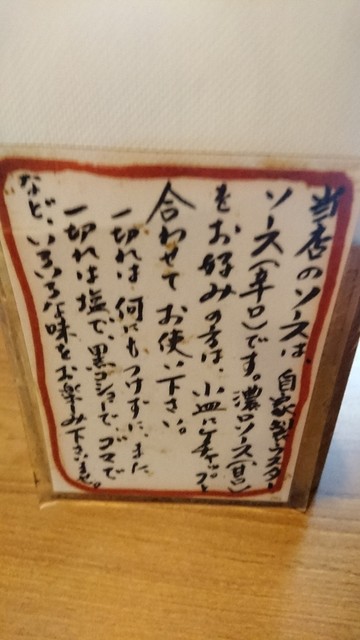 当店のソースは、自家製ウスター
ソース(辛口)です。濃いソース(甘口)
をお好みの方は、小皿にケチャップと
合わせてお使い下さい。
一切れは何にもつけずに、また
一切れは塩で、黒コショーで、ゴマで
など、いろいろな味をお楽しみ下さいませ。